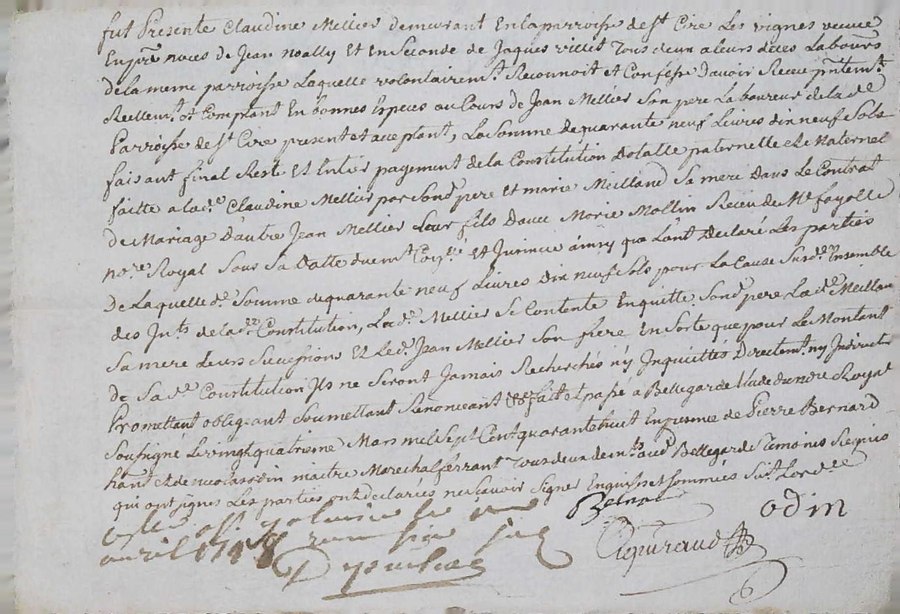 fut Presente Claudine Mellier demeurant En la parroisse de St Cire Les vignes veuve
En pre noces de Jean Noally Et En Seconde de Jaques Tous deux a leurs deces Labours
de la meme parroisse Laquelle volontairemt Reconnoit et Confesse davoir Receu pntemt
Reellemt et Comptant En bonnes Especes au Cours de Jean Mellier Son pere Laboureur de la de
Parroisse de St Cire present et acceptant, La Somme de quarante neuf Livres dix neuf Sols
faisant final Reste Et Entier payement de la Constitution dotalle paternelle et Maternel
faitte a la de Claudine Mellier par Sond pere et marie Meilland Sa mere Dans Le Contrat
de Mariage D'autre Jean Mellier Leur fils Davec Marie Mollin Receu de Me fayolle
nore Royal Sous Sa Datte duemt Conlé Et que Lont Declaré Les parties
De Laquelle de Somme de quarante neuf Livres Dix neuf Sols pour La Cause Surde Ensemble
des Jnts de la de Constitution, La de Mellier Se Contente En quitte Sond pere La de Meilland
Sa mere Leurs Successions Et Led Jean Mellier Son frere En Sorte que pour Le Montant
de Sa de Constitution Jls ne Seront Jamais Recherchés n'y Jnquiettés Directemt ny Jndirectt
Promettant obligeant Soumettant Renonceant fait et passé a Bellegarde Royal
Soussigné Le vingt quatrieme Mars mil Sept Cent quarante huit En presence de Pierre Bernard
et de maitre Marechal ferrant Tous deux demts aud Bellegarde Temoins Requis
qui ont signes Les parties ont declarées ne Scavoir Signer Enquises et Sommées
Bernard
odin
avril 1748